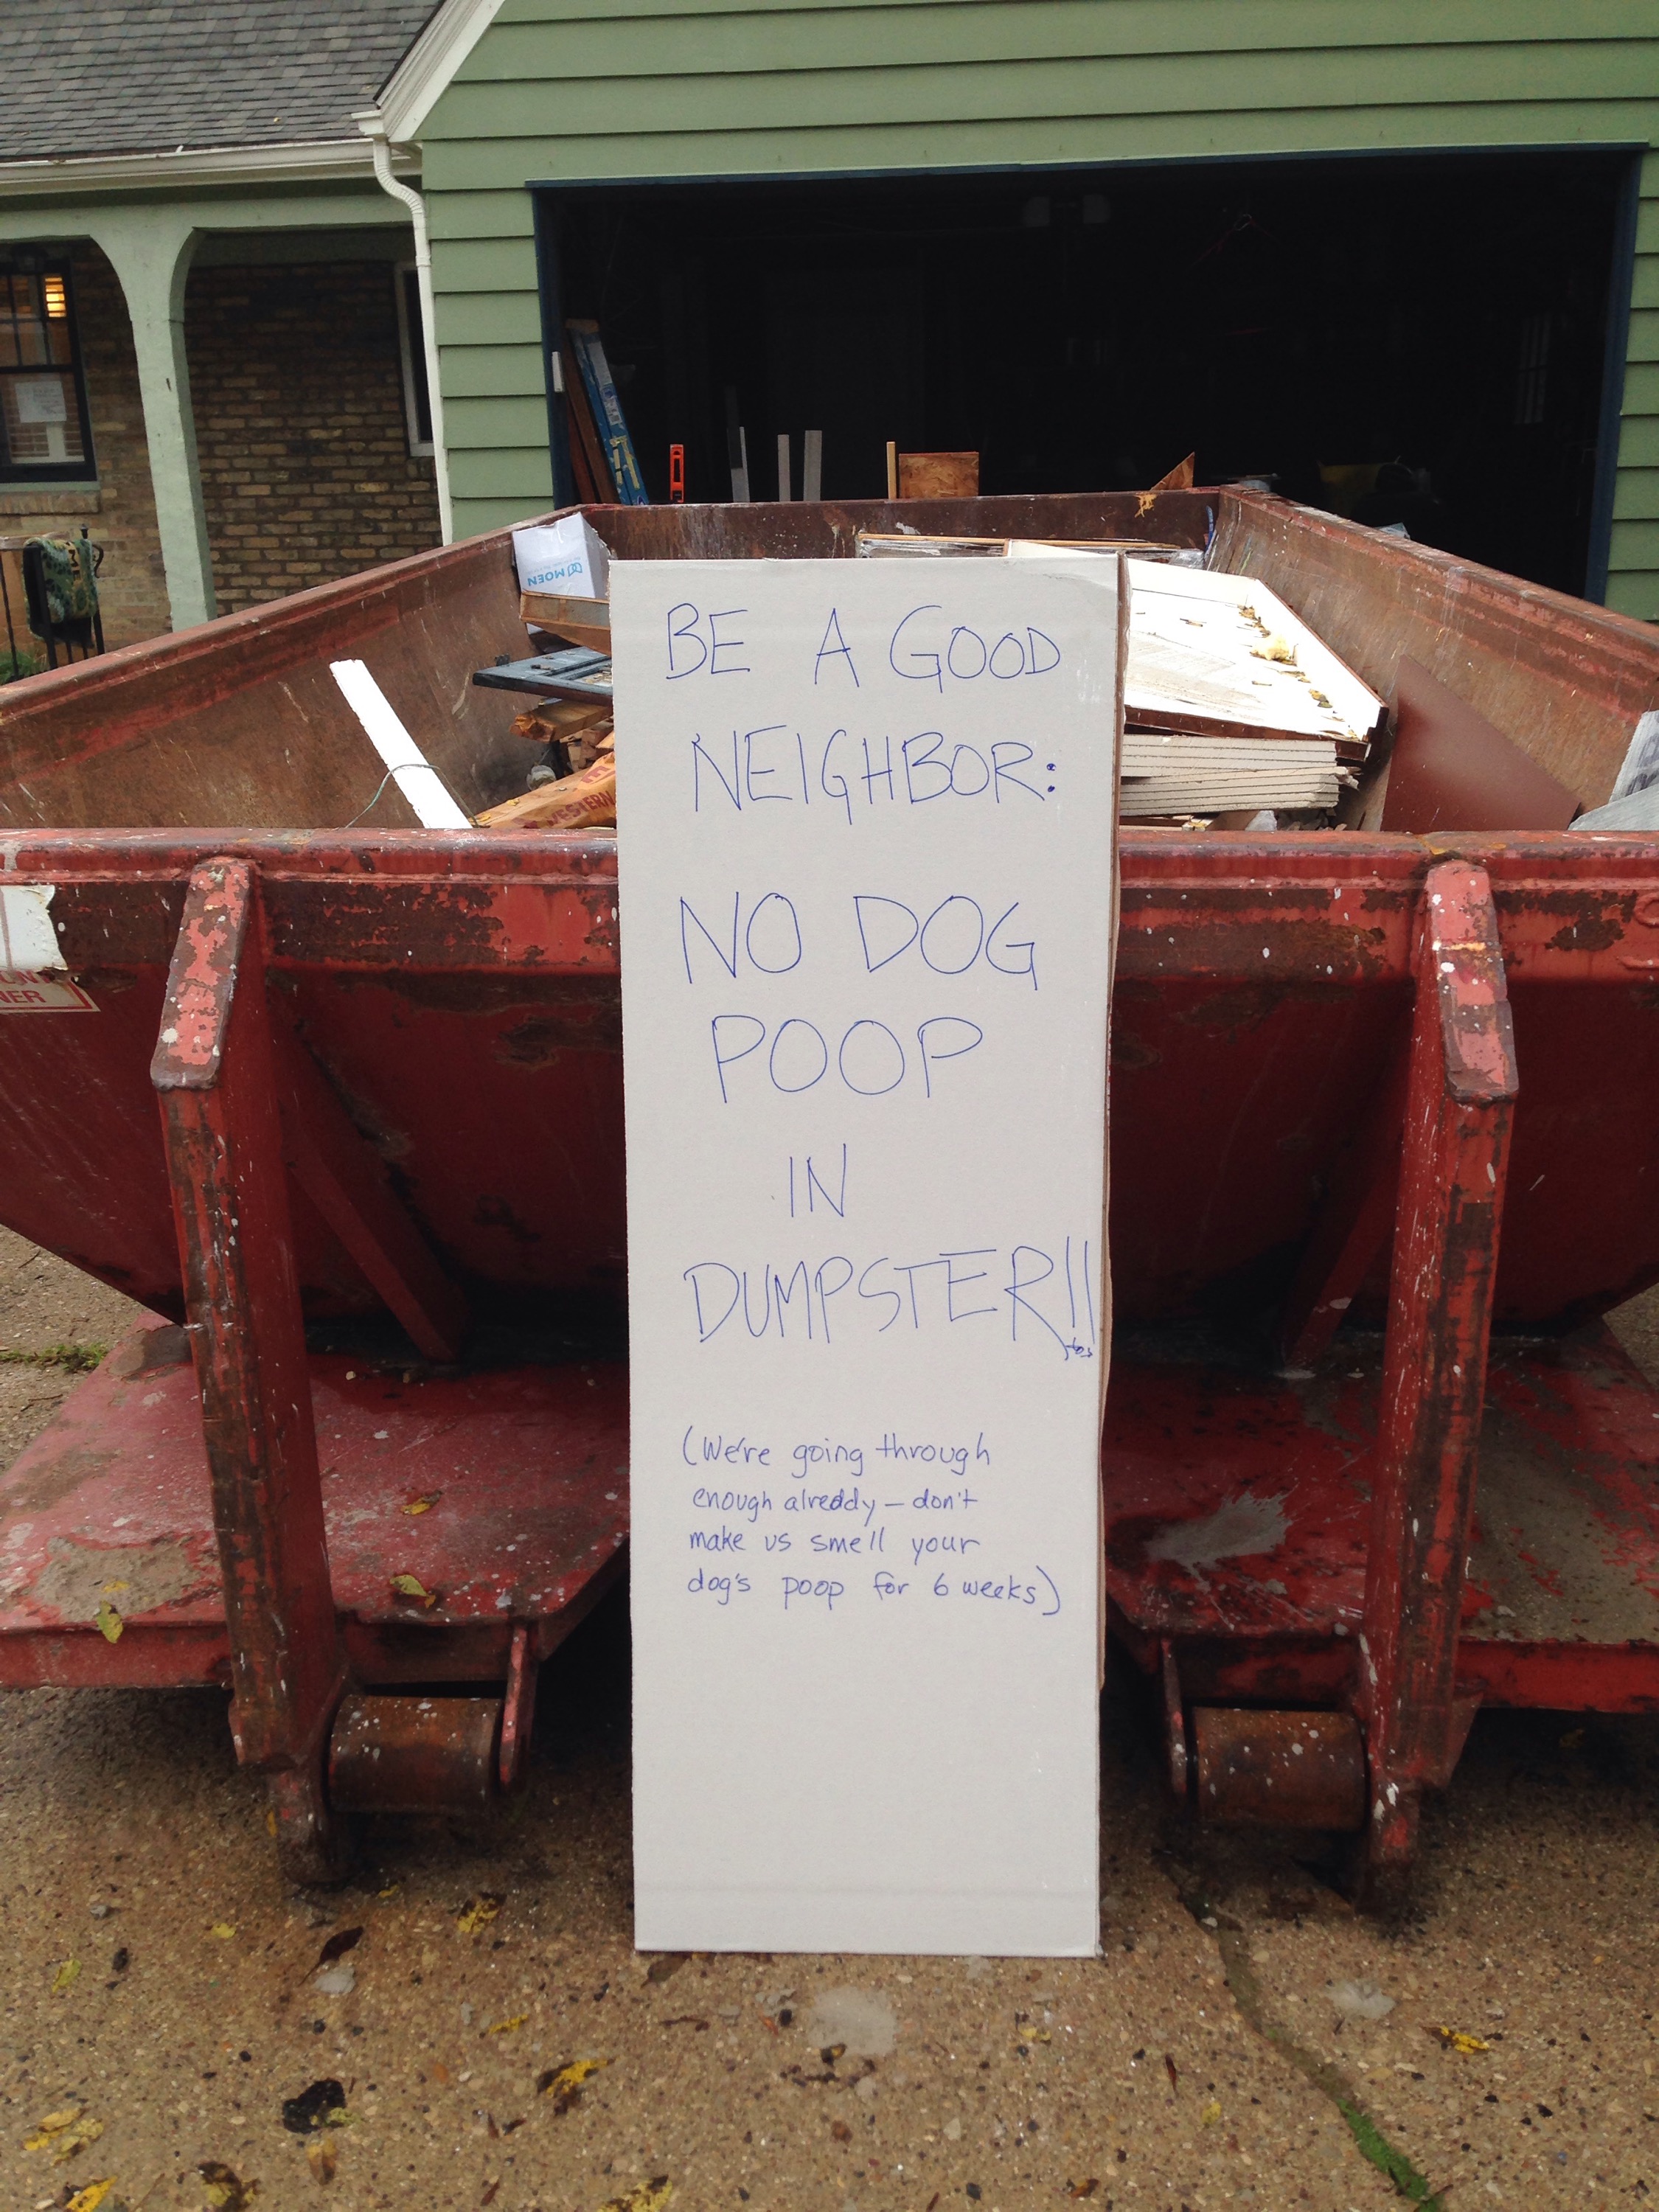 MOEN
WESTERN
NER
BE A GOOD
NEIGHBOR:
NO DOG
POOP
IN
DUMPSTER!!
(We're going through
enough already – don't
make us smell your
dog's poop for 6 weeks)